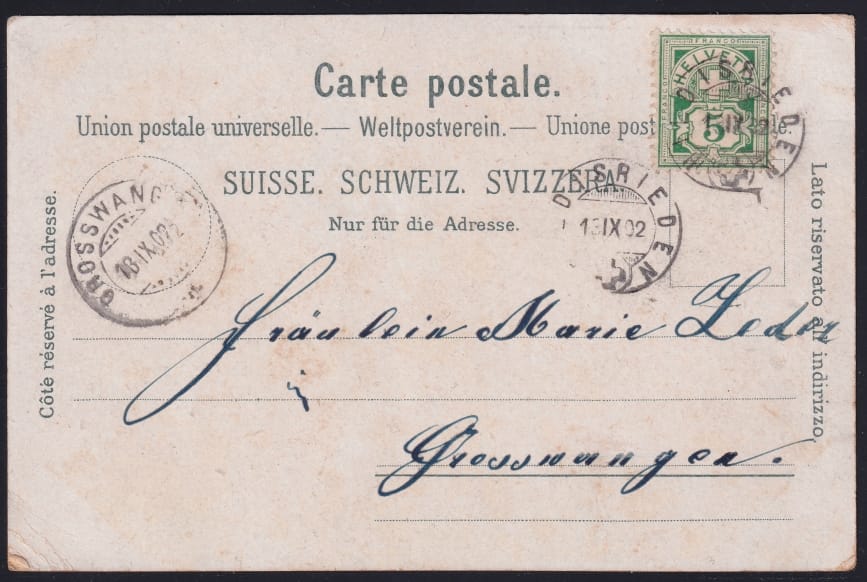 Carte postale.
Union postale universelle. — Weltpostverein. — Unione post
SUISSE. SCHWEIZ. SVIZZERA.
Nur für die Adresse.
Côté réservé à l'adresse.
Lato riservato all' indirizzo.
FRANCO
HELVETIA
5
DISRIEDEN
DISRIEDEN
13 IX 02
GROSSWANG
13 IX 02
Fräulein Marie Leder
in
Grosswangen.